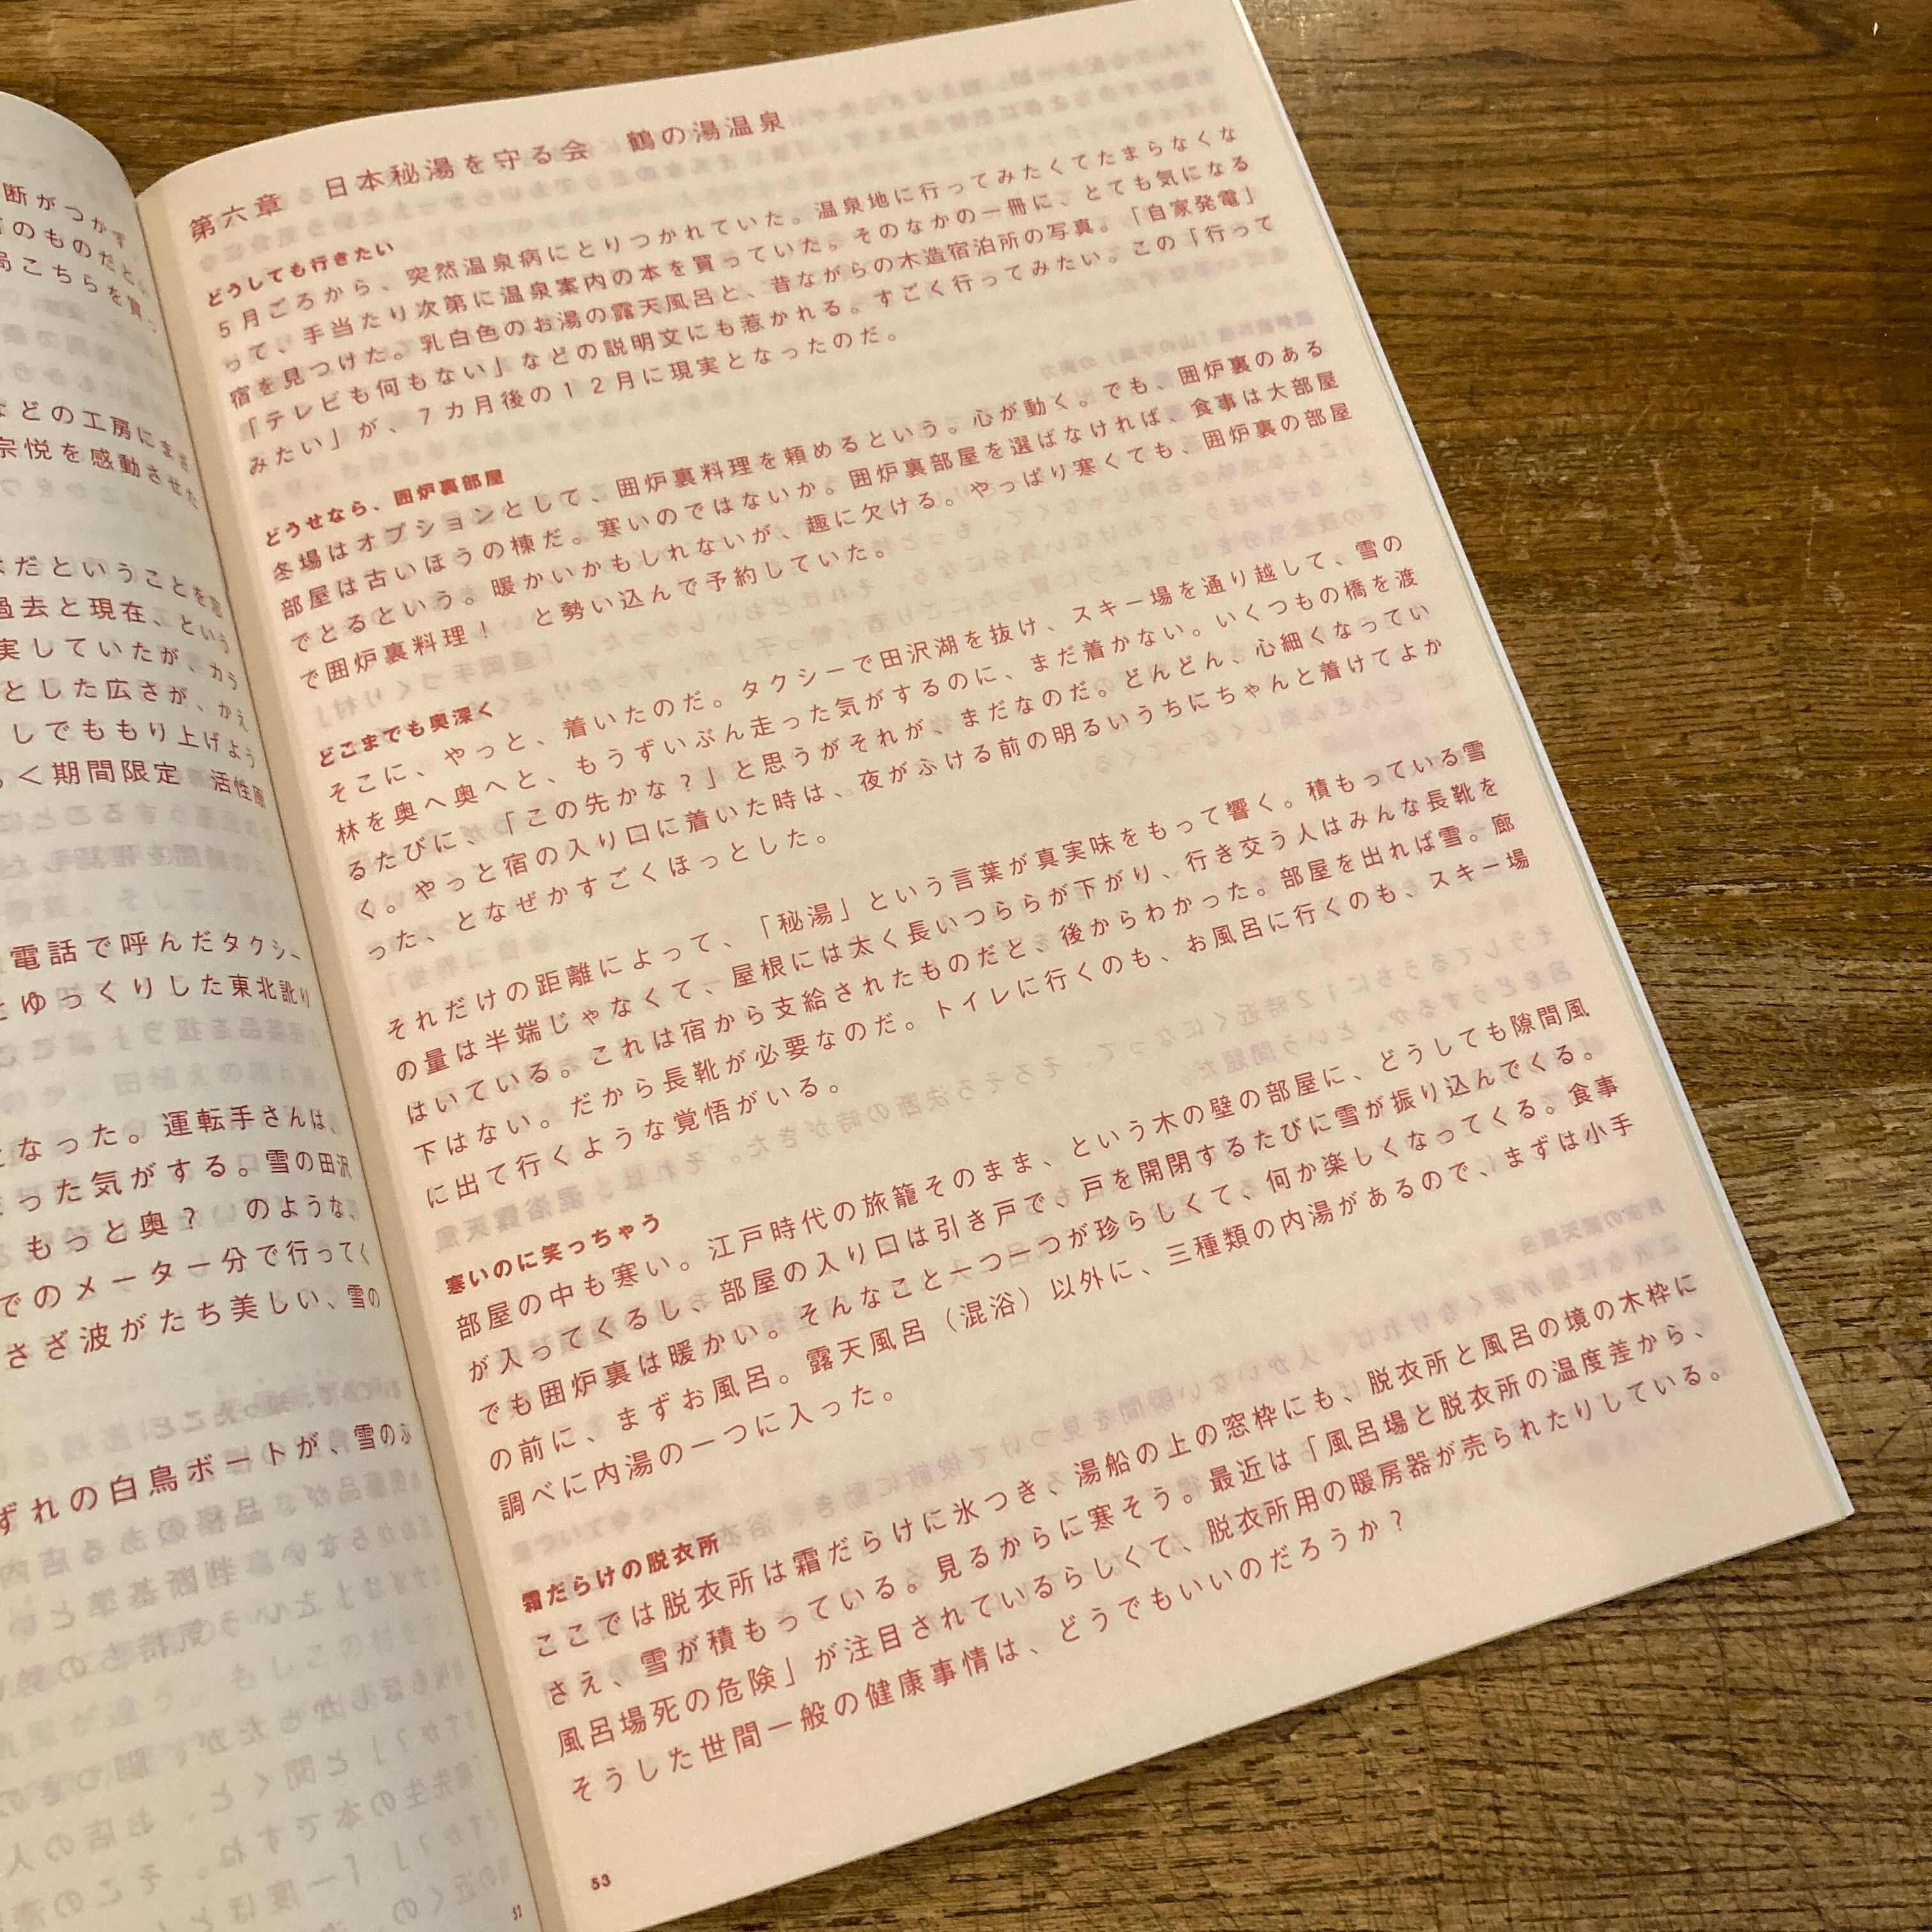 断がつかず、
のものだと
局こちらを買っ
などの工房にまさ
宗悦を感動させた
だということを
過去と現在、という
実していたが、カラ
とした広さが、かえ
しでももり上げよう
く期間限定　活性原
電話で呼んだタクシー
とゆっくりした東北訛り
となった。運転手さんは、
まった気がする。雪の田沢
もっと奥？　のような、
でのメーター分で行ってく
さざ波がたち美しい、雪の
ずれの白鳥ボートが、雪のふ
第六章　日本秘湯を守る会　鶴の湯温泉
どうしても行きたい
５月ごろから、突然温泉病にとりつかれていた。温泉地に行ってみたくてたまらなくな
って、手当たり次第に温泉案内の本を買っていた。そのなかの一冊に、とても気になる
宿を見つけた。乳白色のお湯の露天風呂と、昔ながらの木造宿泊所の写真。「自家発電」
「テレビも何もない」などの説明文にも惹かれる。すごく行ってみたい。この「行って
みたい」が、７カ月後の１２月に現実となったのだ。
どうせなら、囲炉裏部屋
冬場はオプションとして、囲炉裏料理を頼めるという。心が動く。でも、囲炉裏のある
部屋は古いほうの棟だ。寒いのではないか。囲炉裏部屋を選ばなければ、食事は大部屋
でとるという。暖かいかもしれないが、趣に欠ける。やっぱり寒くても、囲炉裏の部屋
で囲炉裏料理！　と勢い込んで予約していた。
どこまでも奥深く
そこに、やっと、着いたのだ。タクシーで田沢湖を抜け、スキー場を通り越して、雪の
林を奥へ奥へと、もうずいぶん走った気がするのに、まだ着かない。いくつもの橋を渡
るたびに、「この先かな？」と思うがそれが、まだなのだ。どんどん、心細くなってい
く。やっと宿の入り口に着いた時は、夜がふける前の明るいうちにちゃんと着けてよか
った、となぜかすごくほっとした。
それだけの距離によって、「秘湯」という言葉が真実味をもって響く。積もっている雪
の量は半端じゃなくて、屋根には太く長いつららが下がり、行き交う人はみんな長靴を
はいている。これは宿から支給されたものだと、後からわかった。部屋を出れば雪。廊
下はない。だから長靴が必要なのだ。トイレに行くのも、お風呂に行くのも、スキー場
に出て行くような覚悟がいる。
寒いのに笑っちゃう
部屋の中も寒い。江戸時代の旅籠そのまま、という木の壁の部屋に、どうしても隙間風
が入ってくるし、部屋の入り口は引き戸で、戸を開閉するたびに雪が振り込んでくる。
でも囲炉裏は暖かい。そんなこと一つ一つが珍らしくて、何か楽しくなってくる。食事
の前に、まずお風呂。露天風呂（混浴）以外に、三種類の内湯があるので、まずは小手
調べに内湯の一つに入った。
霜だらけの脱衣所
ここでは脱衣所は霜だらけに氷つき、湯船の上の窓枠にも、脱衣所と風呂の境の木枠に
さえ、雪が積もっている。見るからに寒そう。最近は「風呂場と脱衣所の温度差から、
風呂場死の危険」が注目されているらしくて、脱衣所用の暖房器が売られたりしている。
そうした世間一般の健康事情は、どうでもいいのだろうか？
53